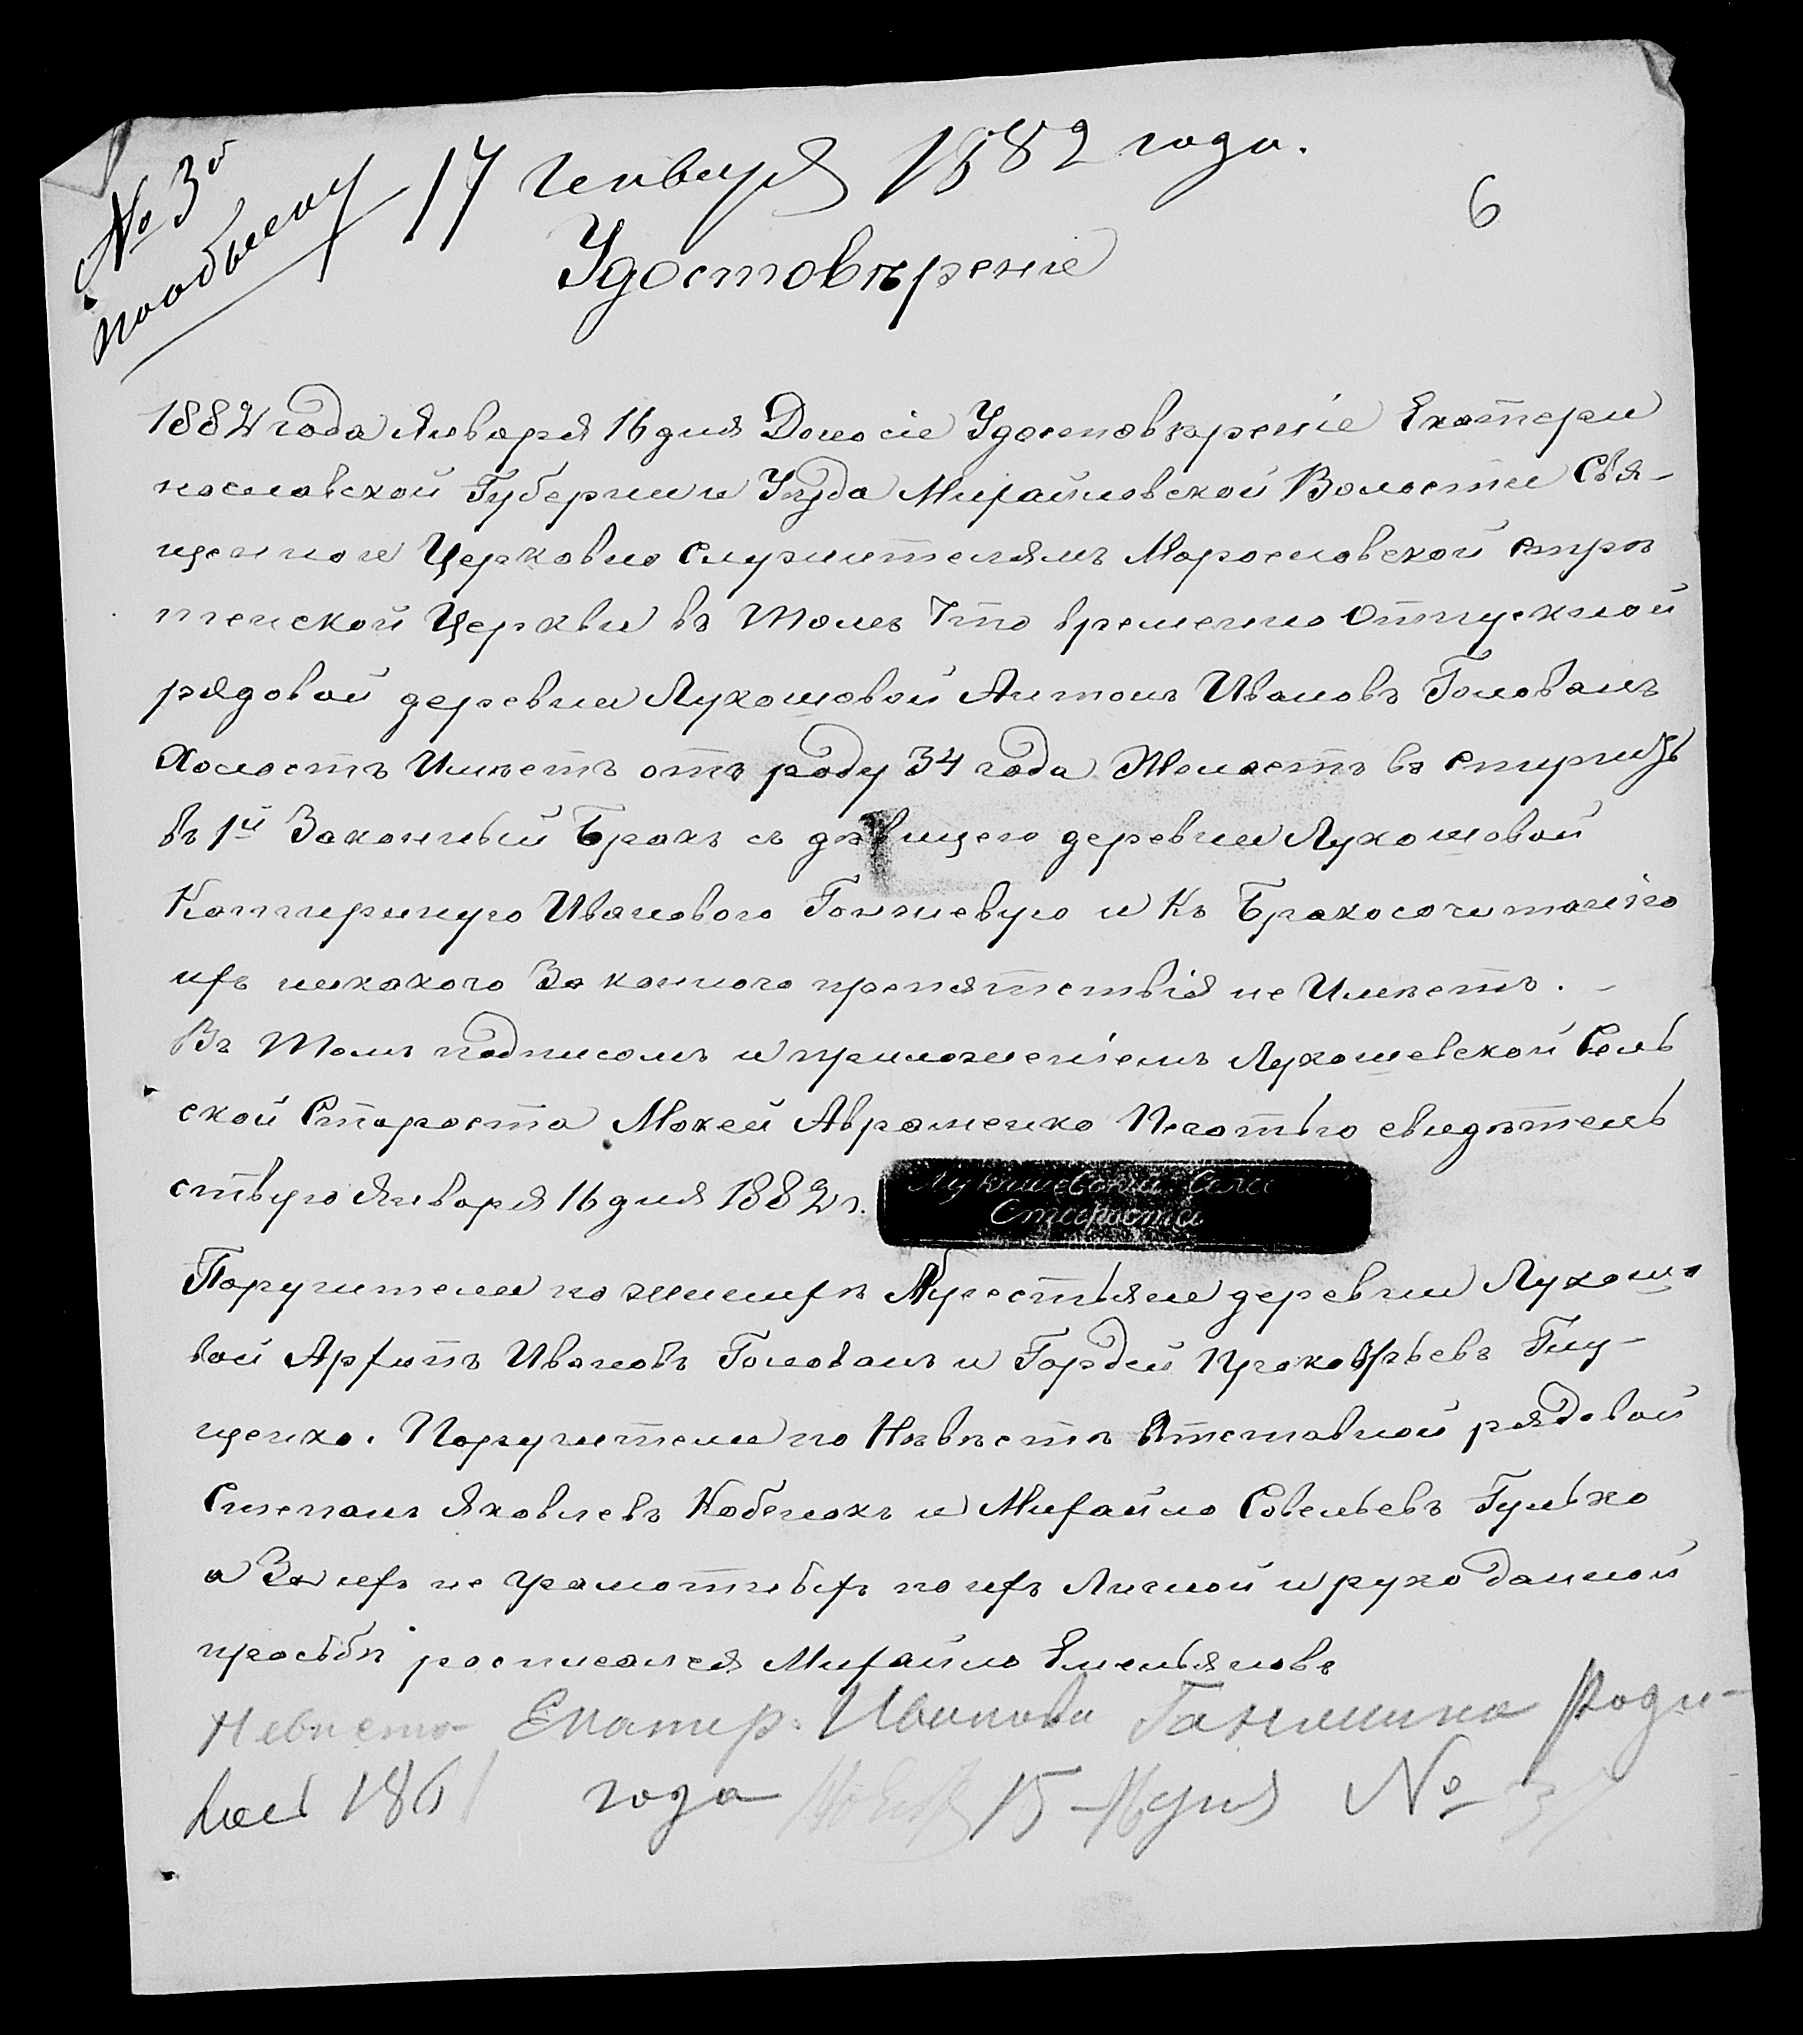 № 3й
пообыску
17 Генваря 1882 года.
6
Удостовѣреніе
1882 года Января 16 дня Дано сіе Удостовѣреніе Екатери
нославской Губерніи и Уѣзда Михайловской Волости Свя-
щенно и Церковно Служителямъ Марьевской Стрѣ
тенской Церкви въ Томъ Что временно Отпускной
рядовой деревни Лукашовой Антонъ Ивановъ Голованъ
Холостъ Имѣетъ отъ роду 34 года Желаетъ вступить
въ 1й Законный Бракъ съ дѣвицею деревни Лукашовой
Катириную Ивановою и Къ Бракосочитанію
ихъ никакого Законного препятствія не Имѣетъ. -
Въ Томъ подписомъ и приложеніемъ Лукашевской Сель
ской Староста Мокей Авраменко Печатью свидѣтель
ствую Января 16 дня 1882 г.
Лукашевский Сель
Староста
Поручители по женихѣ Крестьяне деревни Лукаш-
вой Архипъ Ивановъ Голованъ и Гордей Прокофьевъ Глу-
щенко. Поручители по Невѣстѣ Отставной рядовой
Степанъ Яковлевъ Кобенокъ и Михайло Савельевъ Гулько
а За ихъ не грамотныхъ по ихъ Личной и рукоданной
просьбѣ росписался Михайло Емельяновъ
Невѣста Екатер. Иванова Роди-
лась 1861 года 15-16 дня №